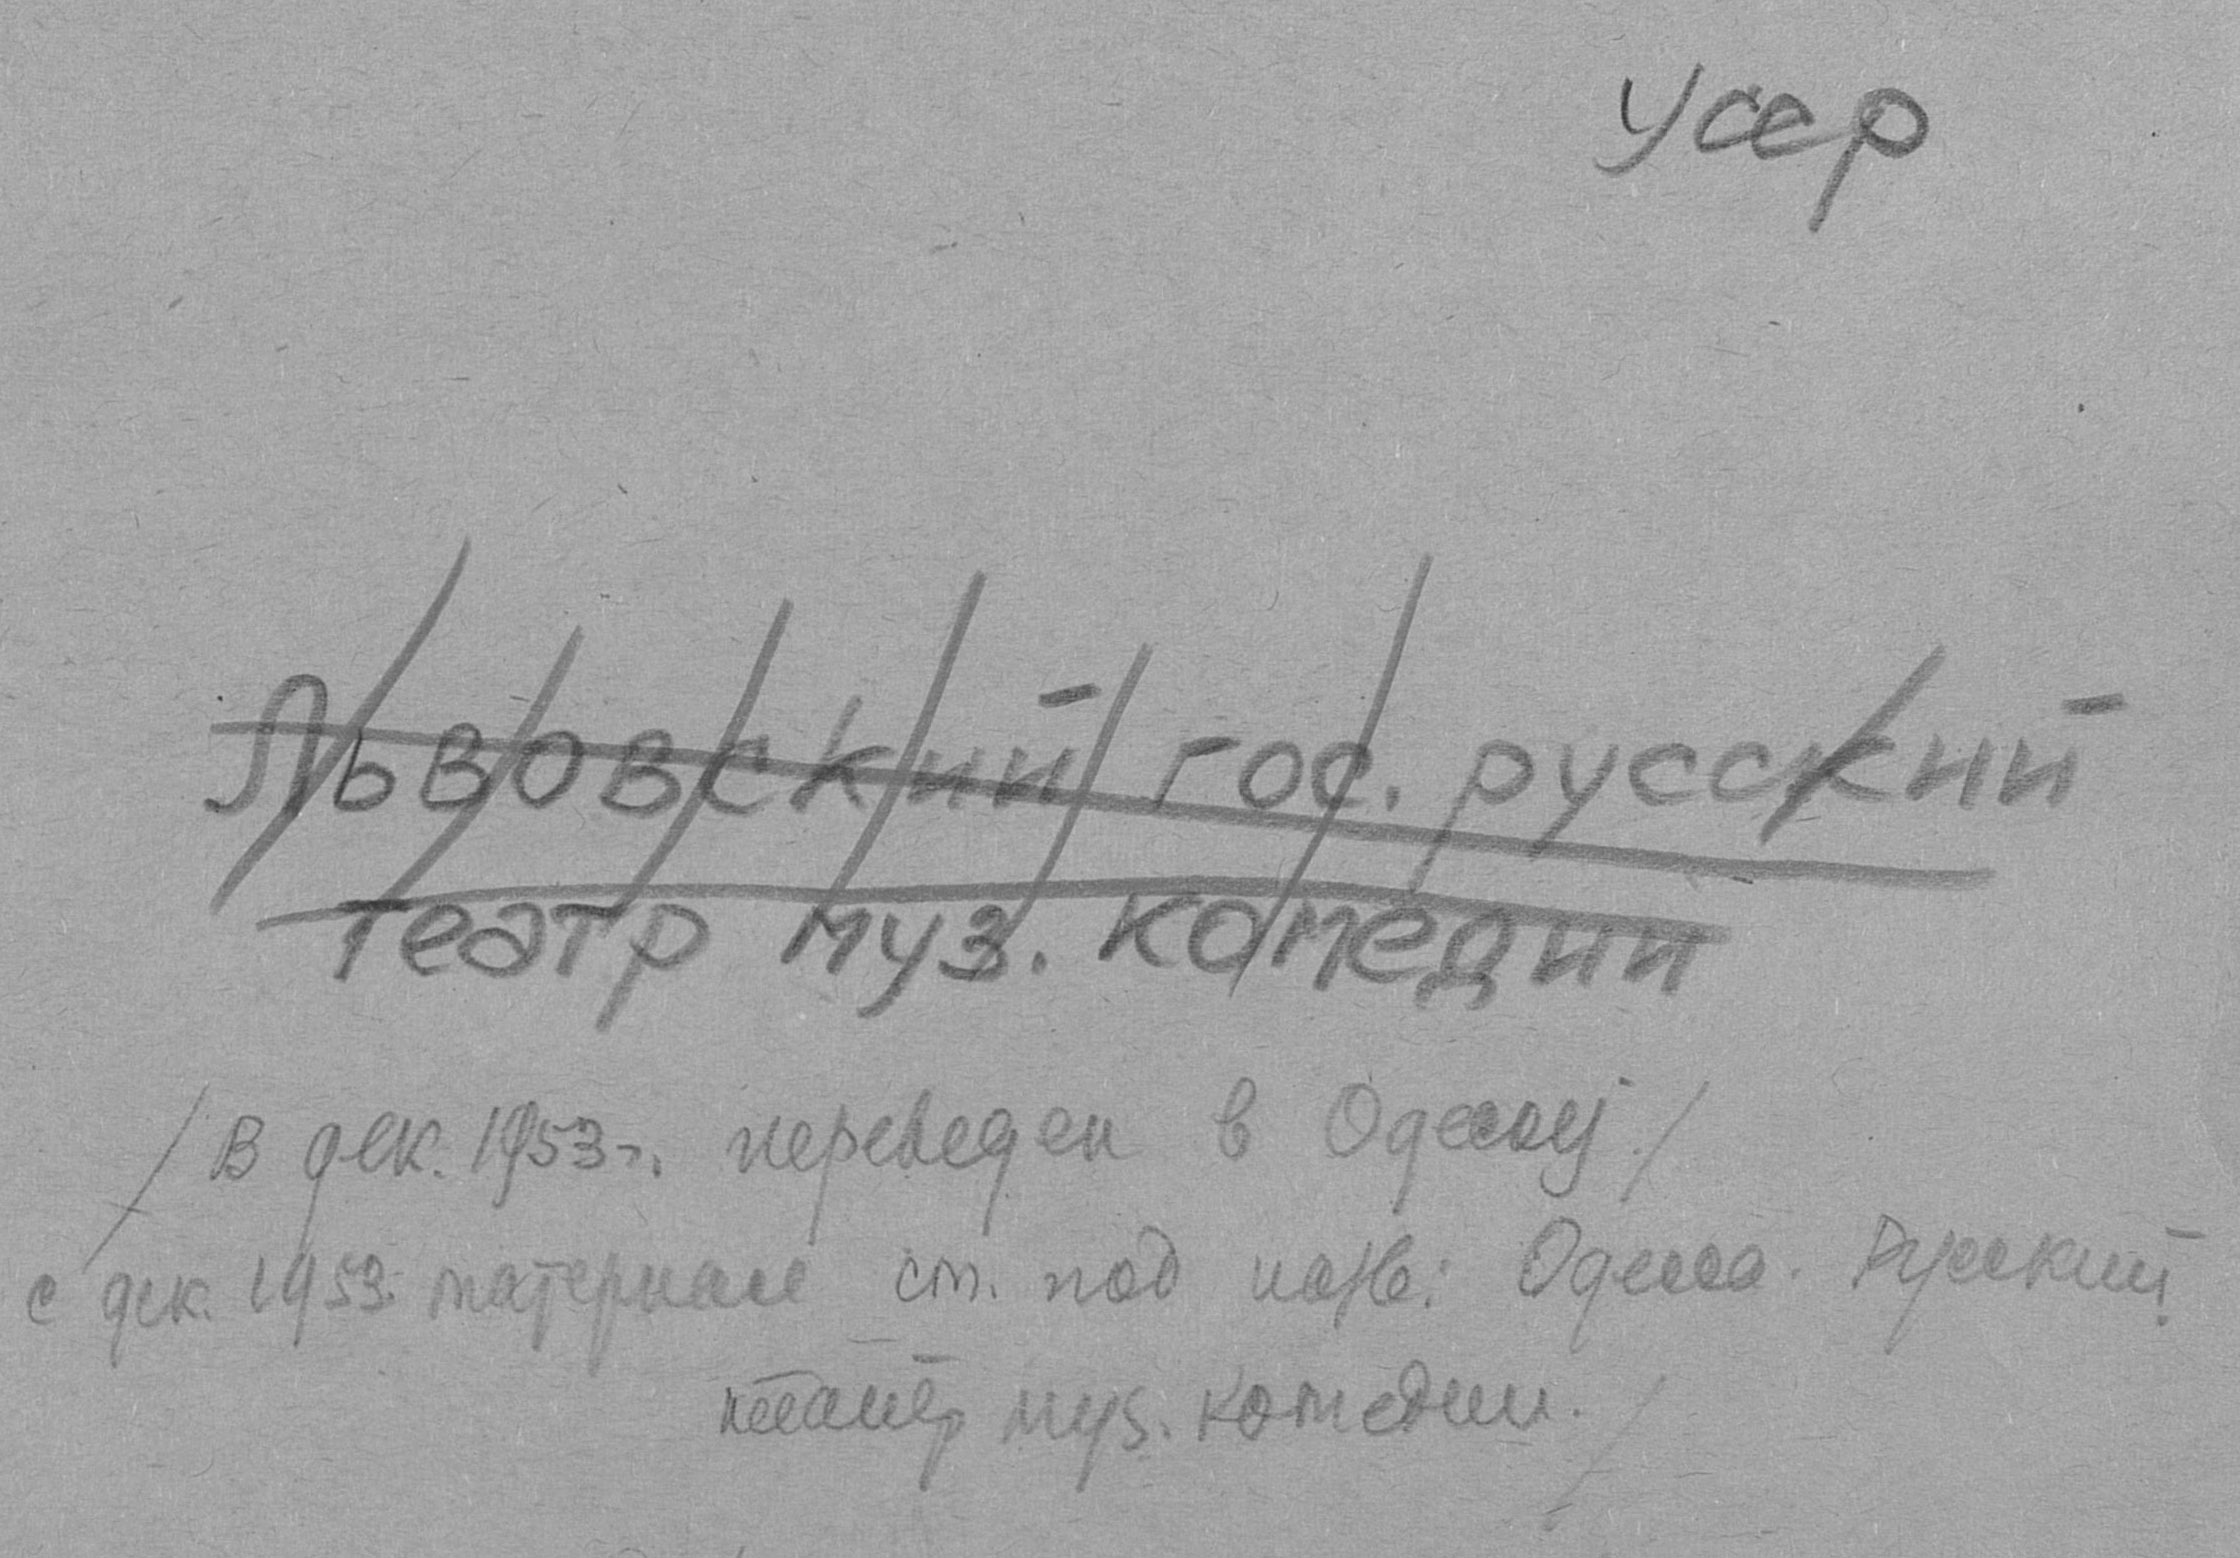 УССР
Львовский гос. русский
театр муз. комедии
/В дек. 1953 г. переведен в Одессу/
с дек. 1953 материал см. под назв: Одесса. Русский
театр муз. комедии./